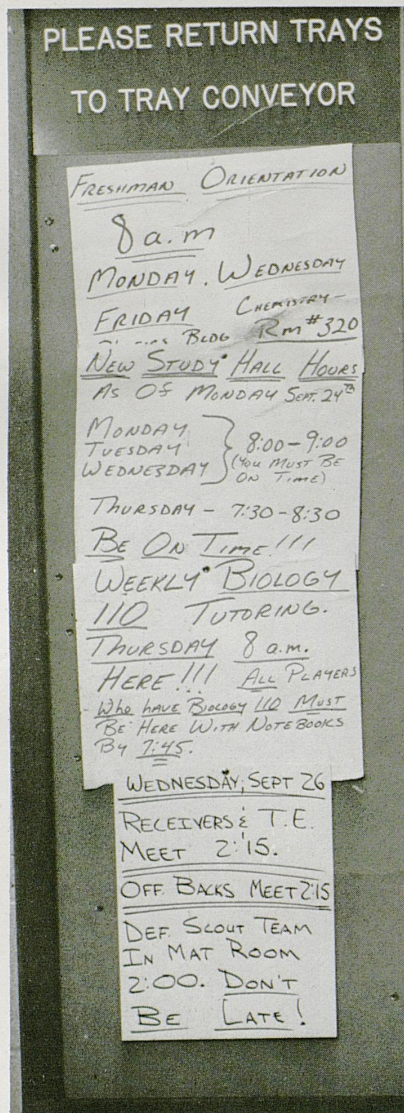 PLEASE RETURN TRAYS
TO TRAY CONVEYOR
FRESHMAN ORIENTATION
8 a.m
MONDAY, WEDNESDAY
FRIDAY CHEMISTRY-
BLDG Rm #320
NEW STUDY HALL HOURS
AS OF MONDAY SEPT. 24th
MONDAY
TUESDAY 8:00-9:00
WEDNESDAY (YOU MUST BE
ON TIME)
THURSDAY - 7:30-8:30
BE ON TIME!!!
WEEKLY BIOLOGY
110 TUTORING.
THURSDAY 8 a.m.
HERE!!! ALL PLAYERS
WHO HAVE BIOLOGY 110 MUST
BE HERE WITH NOTEBOOKS
BY 7:45.
WEDNESDAY, SEPT 26
RECEIVERS & T.E.
MEET 2:15.
OFF. BACKS MEET 2:15
DEF. SCOUT TEAM
IN MAT ROOM
2:00. DON'T
BE LATE!